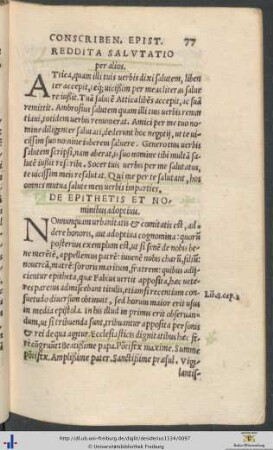 CONSCRIBEN. EPIST. 77
REDDITA SALVTATIO
per alios.
ATtica, quam illi tuis verbis dixi salutem, liben
ter accepit, teq; vicissim per me
re iussit. Tuā salutē Attica libēs accepit, ac suā
remittit. Ambrosius salutem quam illi tuis verbis renū
tiaui, totidem verbis renumerat. Amici per me tuo no
mine diligenter salutati, dederunt hoc negotij, ut te ui
cissim suo nomine iberem saluere. Generoius uerbis
salutem scripsi, nam aberat, is suo nomine tibi multā sa
lutē iussit rescribi. Socer tuis uerbis per me salutatus,
te uicissim meis resalutat. Qui me per te salutant, hos
omneis mutua salute meis uerbis imparties.
DE EPITHETIS ET NO-
minibus adoptiuis.
NOnnunquam urbanitatis & comitatis est, ad
dere honoris, aut adoptiua cognomina: quorū
posterius exemplum est, ut si senē de nobis be
ne meritū, appellemus patrē: iuuenē nobis charū, filiū:
nouercā, matrē: sororis maritum, fratrem: quibus adij
ciuntur epitheta, quæ Fabius uerbis apposita, hec ue
teres parcius admisebant titulis, etiam si recentium con
suetudo diuersum obtinuit, sed horum maior erit usus
in media epistola. In his illud in primis erit obseruan
dum, ut si tribuenda sunt, tribuantur apposita personis
& rei de qua agitur. Ecclesiasticis dignitatibus hæc fe
rè cōgruūt: Beatissime papa. Pōtifex maxime. Summe
Pōtifex. Amplissime pater. Sanctissime præsul. Vigi
lantis-
Lib. 8. cap. 2
http://dl.ub.uni-freiburg.de/diglit/desiderius1534/0097
© Universitätsbibliothek Freiburg